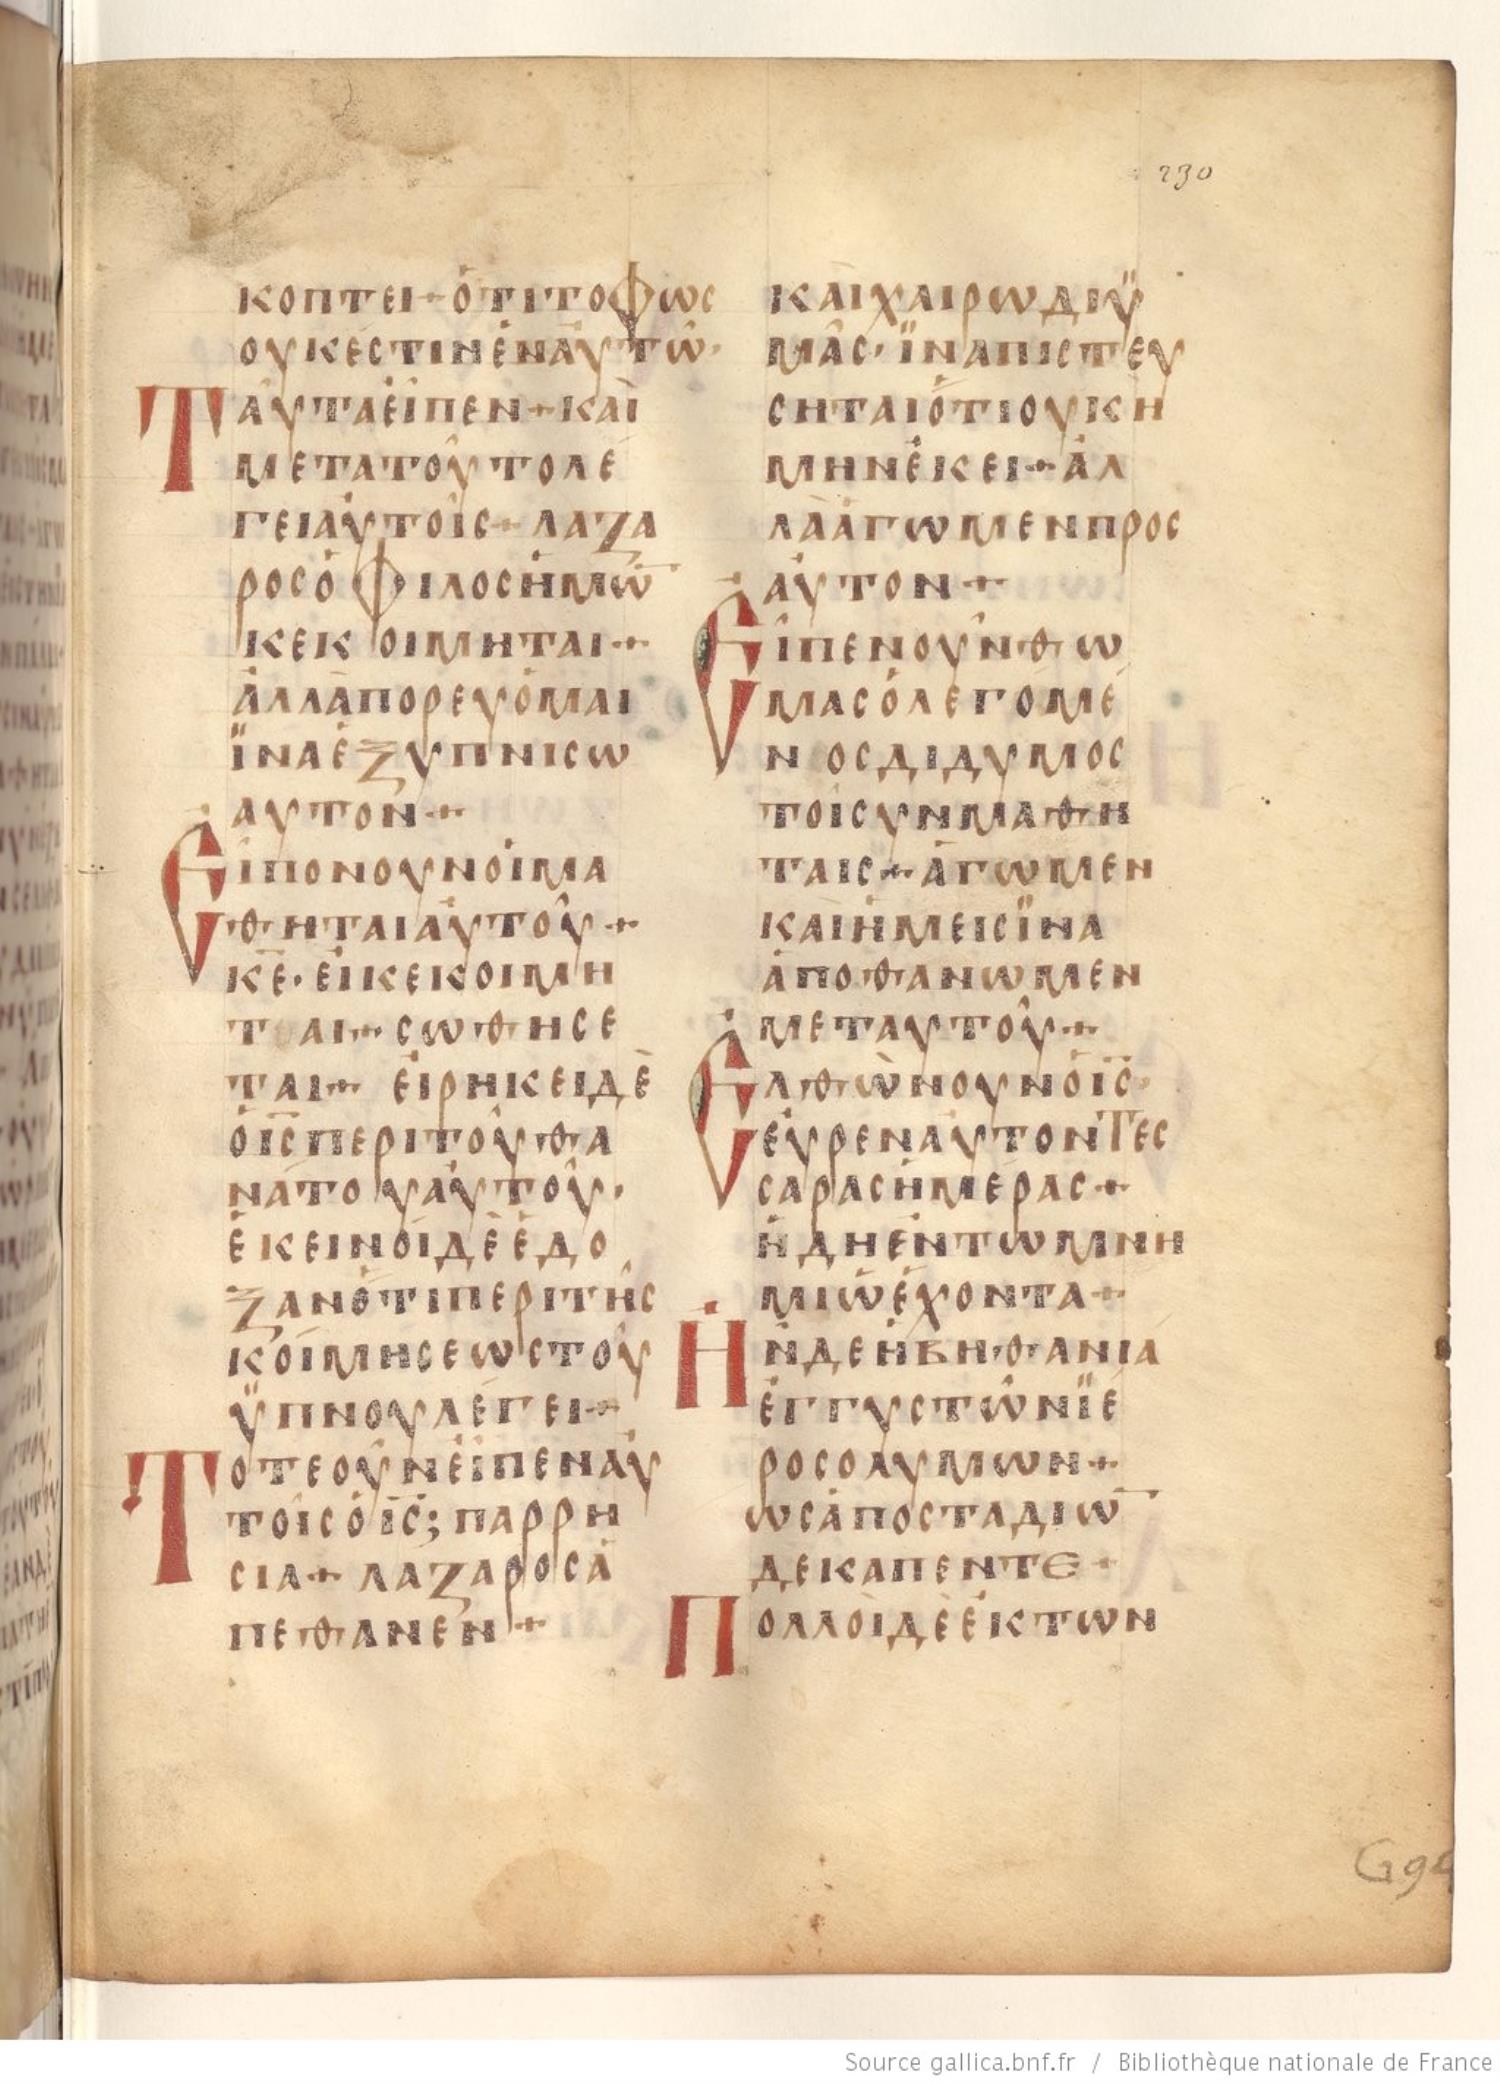 230
ΚΟΠΤΕΙ + ὉΤΙ ΤΟ ΦΩΣ
ΟΥΚ ΕΣΤΙΝ ΕΝ ΑΥΤΩ·
ΤΑΥΤΑ ΕΙΠΕΝ + ΚΑΙ
ΜΕΤΑ ΤΟΥΤΟ ΛΕ
ΓΕΙ ΑΥΤΟΙΣ + ΛΑΖΑ
ΡΟΣ Ο ΦΙΛΟΣ ΗΜΩ̅
ΚΕΚΟΙΜΗΤΑΙ +
ΑΛΛΑ ΠΟΡΕΥΟΜΑΙ
ΪΝΑ ΕΞΥΠΝΙΣΩ
ΑΥΤΟΝ +
ΕΙΠΟΝ ΟΥΝ ΟΙ ΜΑ
ΘΗΤΑΙ ΑΥΤΟΥ +
Κ̅Ε̅· ΕΙ ΚΕΚΟΙΜΗ
ΤΑΙ + ΣΩΘΗΣΕ
ΤΑΙ + ΕΙΡΗΚΕΙ ΔΕ
Ο Ι̅Σ̅ ΠΕΡΙ ΤΟΥ ΘΑ
ΝΑΤΟΥ ΑΥΤΟΥ·
ΕΚΕΙΝΟΙ ΔΕ ΕΔΟ
ΞΑΝ ΟΤΙ ΠΕΡΙ ΤΗΣ
ΚΟΙΜΗΣΕΩΣ ΤΟΥ
ΫΠΝΟΥ ΛΕΓΕΙ +
ΤΟΤΕ ΟΥΝ ΕΙΠΕΝ ΑΥ
ΤΟΙΣ Ο Ι̅Σ̅; ΠΑΡΡΗ
ΣΙΑ + ΛΑΖΑΡΟΣ Α
ΠΕΘΑΝΕΝ +
ΚΑΙ ΧΑΙΡΩ ΔΙ Ϋ
ΜΑΣ· ΪΝΑ ΠΙΣΤΕΥ
ΣΗΤΑΙ ΟΤΙ ΟΥΚ Η
ΜΗΝ ΕΚΕΙ + ΑΛ
ΛΑ ΑΓΩΜΕΝ ΠΡΟΣ
ΑΥΤΟΝ +
ΕΙΠΕΝ ΟΥΝ ΘΩ
ΜΑΣ Ο ΛΕΓΟΜΕ
ΝΟΣ ΔΙΔΥΜΟΣ
ΤΟΙΣ ΥΝΜΑΘΗ
ΤΑΙΣ + ΑΓΩΜΕΝ
ΚΑΙ ΗΜΕΙΣ ΪΝΑ
ΑΠΟΘΑΝΩΜΕΝ
ΜΕΤ ΑΥΤΟΥ +
ΕΛΘΩΝ ΟΥΝ Ο Ι̅Σ̅·
ΕΥΡΕΝ ΑΥΤΟΝ ΤΕΣ
ΣΑΡΑΣ ΗΜΕΡΑΣ +
ΗΔΗ ΕΝ ΤΩ ΜΝΗ
ΜΙΩ ΕΧΟΝΤΑ +
ΗΝ ΔΕ Η ΒΗΘΑΝΙΑ
ΕΓΓΥΣ ΤΩΝ ΪΕ
ΡΟΣΟΛΥΜΩΝ +
ΩΣ ΑΠΟ ΣΤΑΔΙΩ̅
ΔΕΚΑΠΕΝΤΕ +
ΠΟΛΛΟΙ ΔΕ ΕΚ ΤΩΝ
Source gallica.bnf.fr / Bibliothèque nationale de France